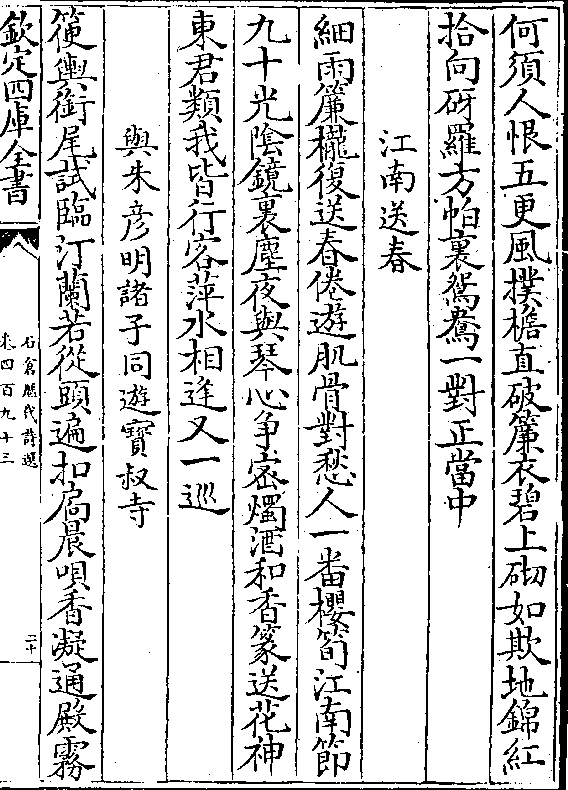 何須人恨五更風撲檐直破簾衣碧上砌如欺地錦紅
拾向砑羅方帕裏鴛鴦一對正當中
江南送春
細雨簾櫳復送春倦遊肌骨對愁人一番櫻筍江南節
九十光陰鏡裏塵夜與琴心争宻燭酒和香篆送花神
東君類我皆行客萍水相逢又一巡
與朱彦明諸子同遊寶叔寺
箯輿銜尾試臨汀蘭若從頭遍扣扃晨唄香凝通殿霧
欽定四庫全書
石倉歴代詩選
卷四百九十三
二十